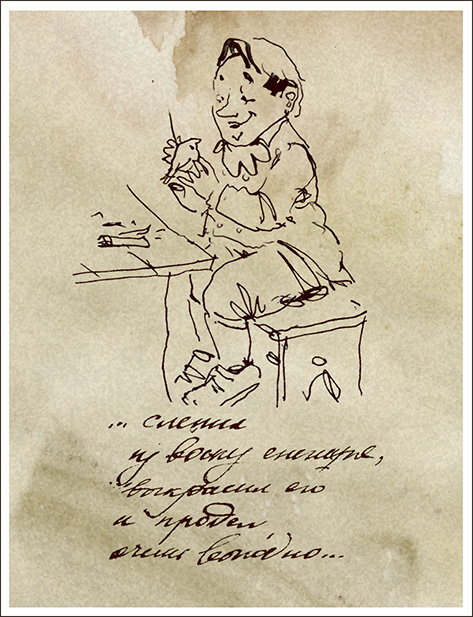 ... слепил
из воску снегиря,
выкрасил его
и продал
очень выгодно...